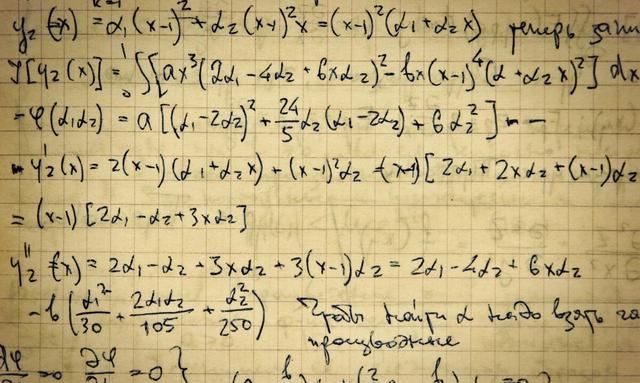 y₂(x) = α₁(x-1)² + α₂(x-1)²x = (x-1)²(α₁+α₂x) теперь
J[y₂(x)] = ₀∫¹[ax³(2α₁-4α₂+6xα₂)² - bx(x-1)⁴(α+α₂x)²] dx
- φ(α₁α₂) = a[(α₁-2α₂)² + 24/5 α₂(α₁-2α₂) + 6α₂²] - -
y₂'(x) = 2(x-1)(α₁+α₂x) + (x-1)²α₂ = (x-1)[2α₁+2xα₂+(x-1)α₂
= (x-1)[2α₁-α₂+3xα₂]
y₂''(x) = 2α₁-α₂+3xα₂+3(x-1)α₂ = 2α₁-4α₂+6xα₂
- b(α₁²/30 + 2α₁α₂/105 + α₂²/250) Чтобы найти α надо взять
производные
∂φ = 0 ∂φ = 0 }